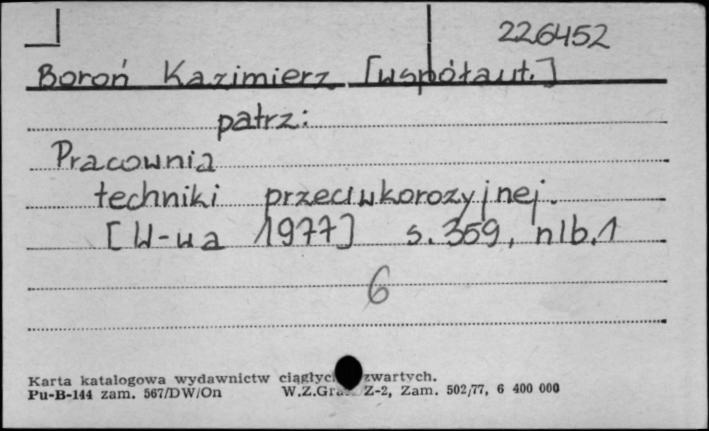 226452
Boroń Kazimierz [współaut.]
patrz:
Pracownia
techniki przeciwkorozyjnej.
[W-wa 1977] s. 359, nlb. 1
6
Karta katalogowa wydawnictw zwartych.
Pu-B-144 zam. 567/DW/On W.Z.Graf. Z-2, Zam. 502/77, 6 400 000